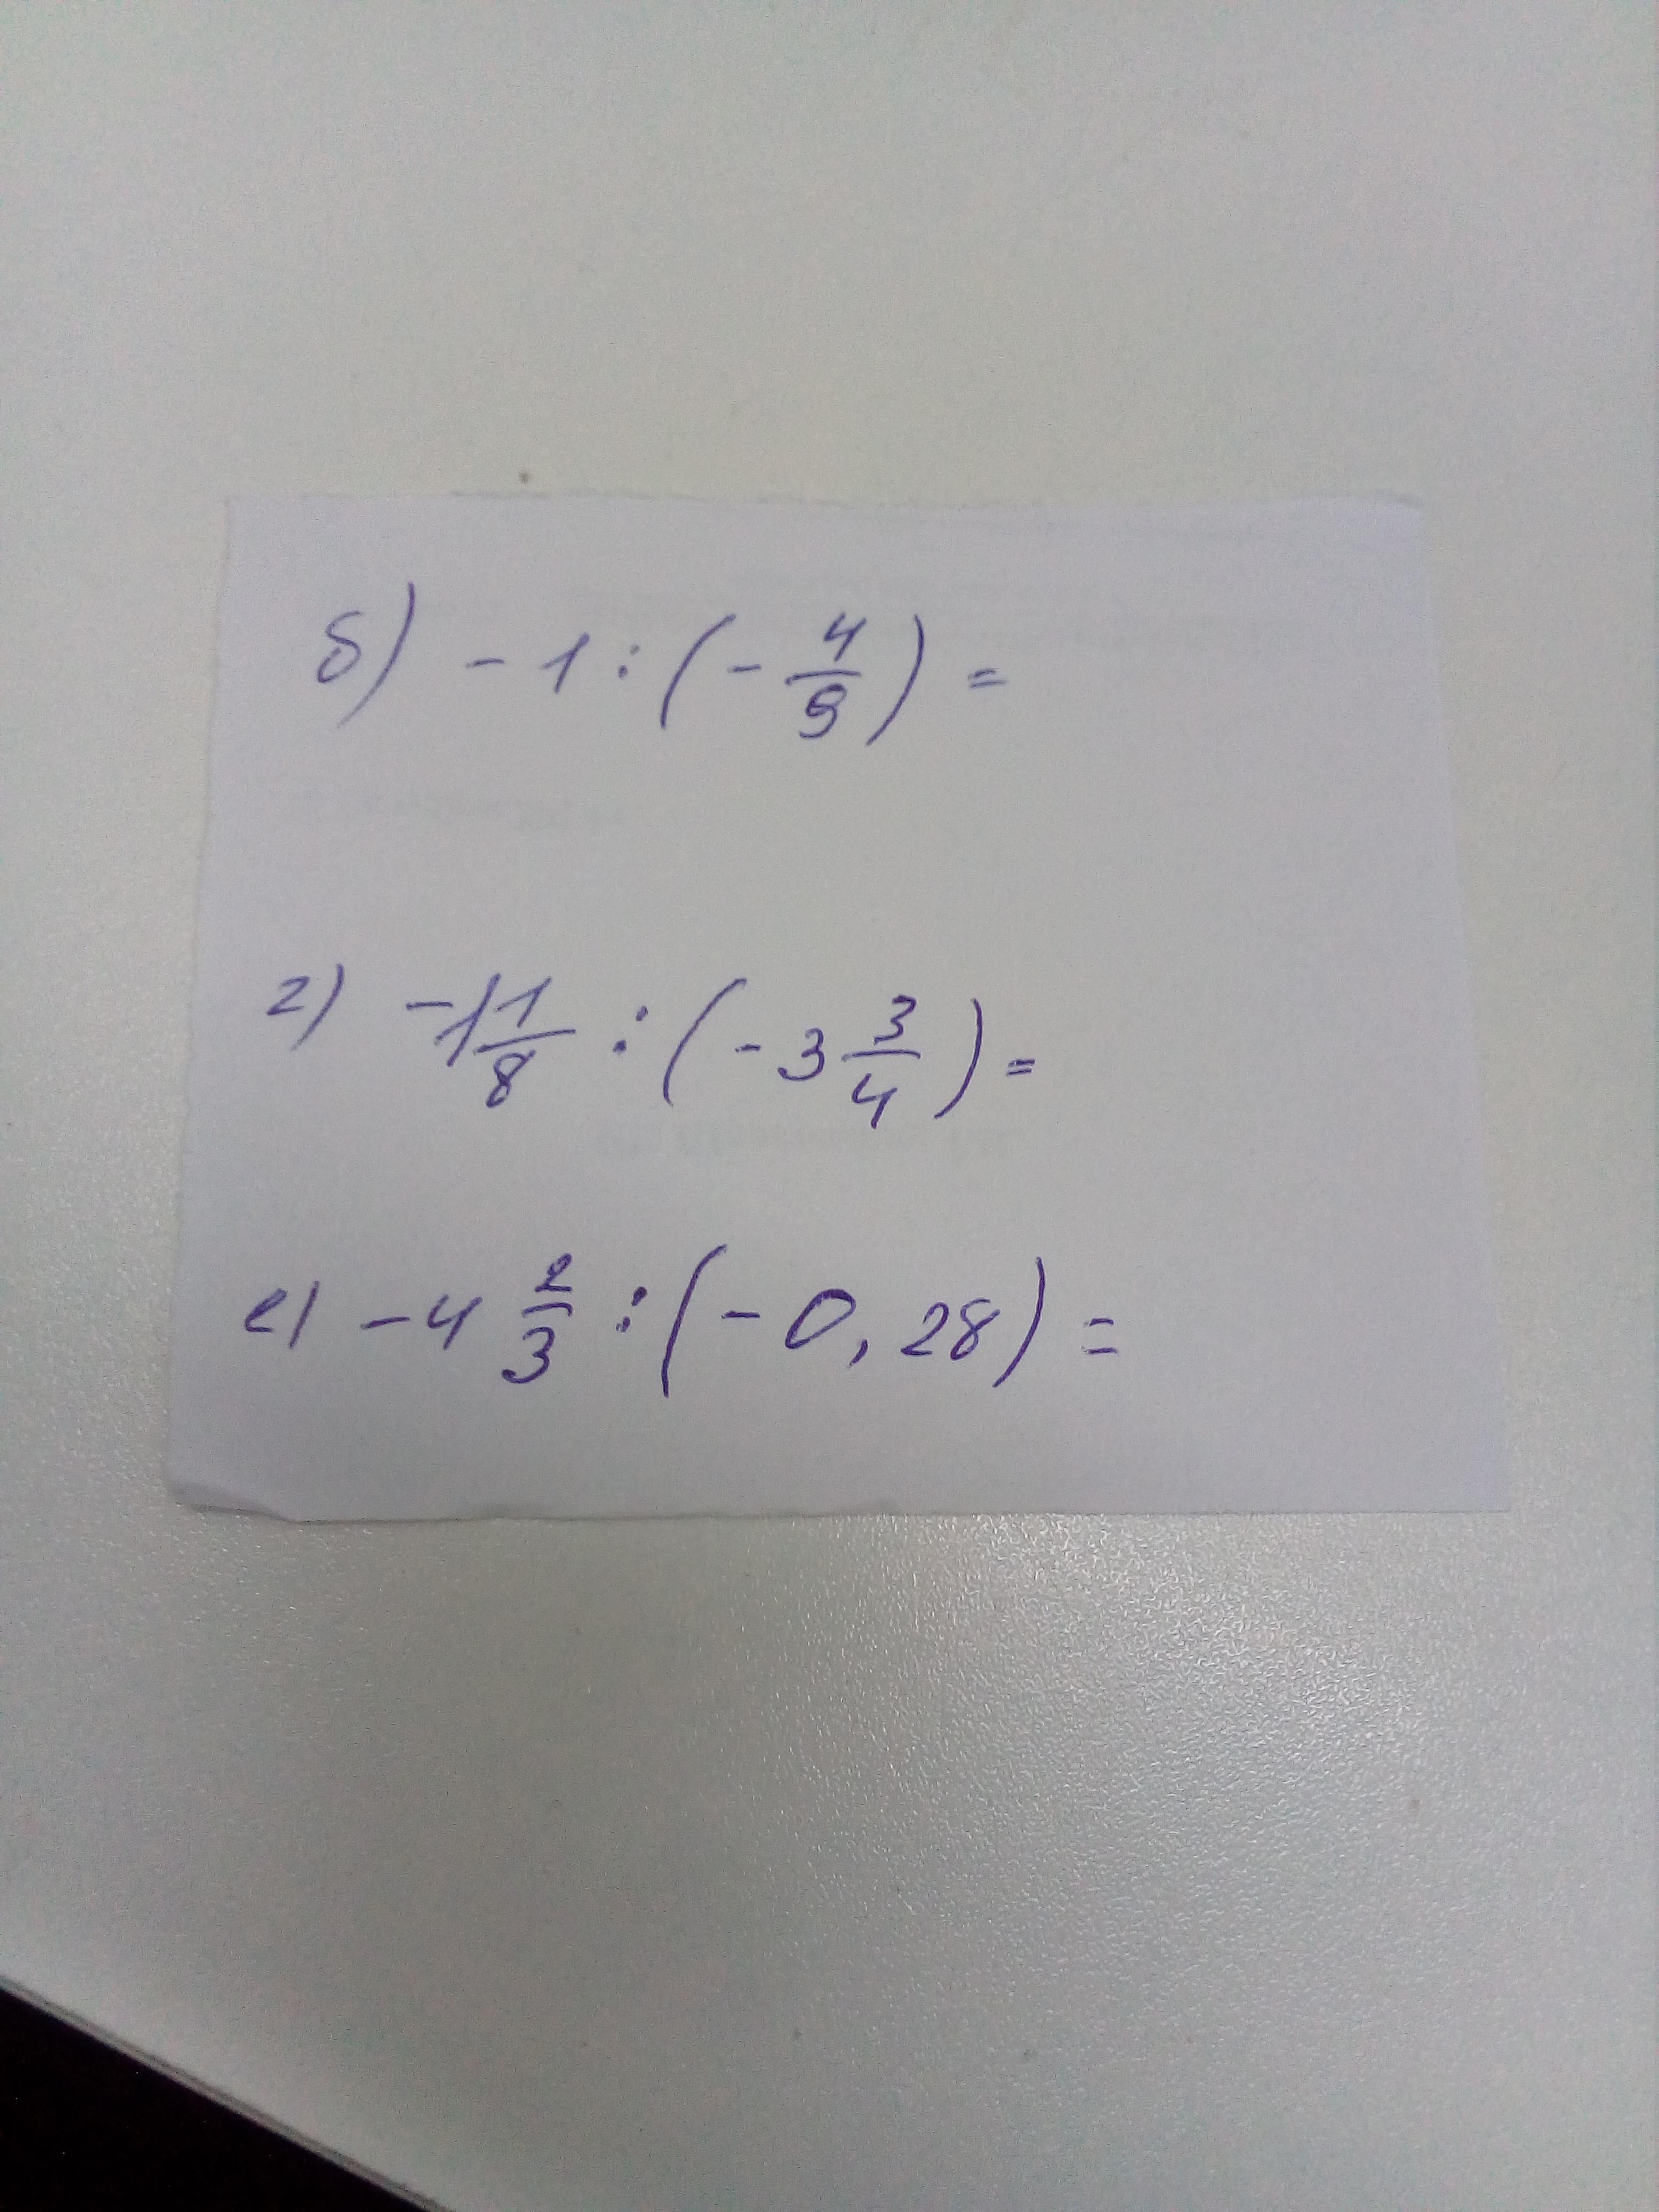 б) - 1 : (- 4/9) =
г) - 1 1/8 : (- 3 3/4) =
е) - 4 2/3 : (- 0,28) =